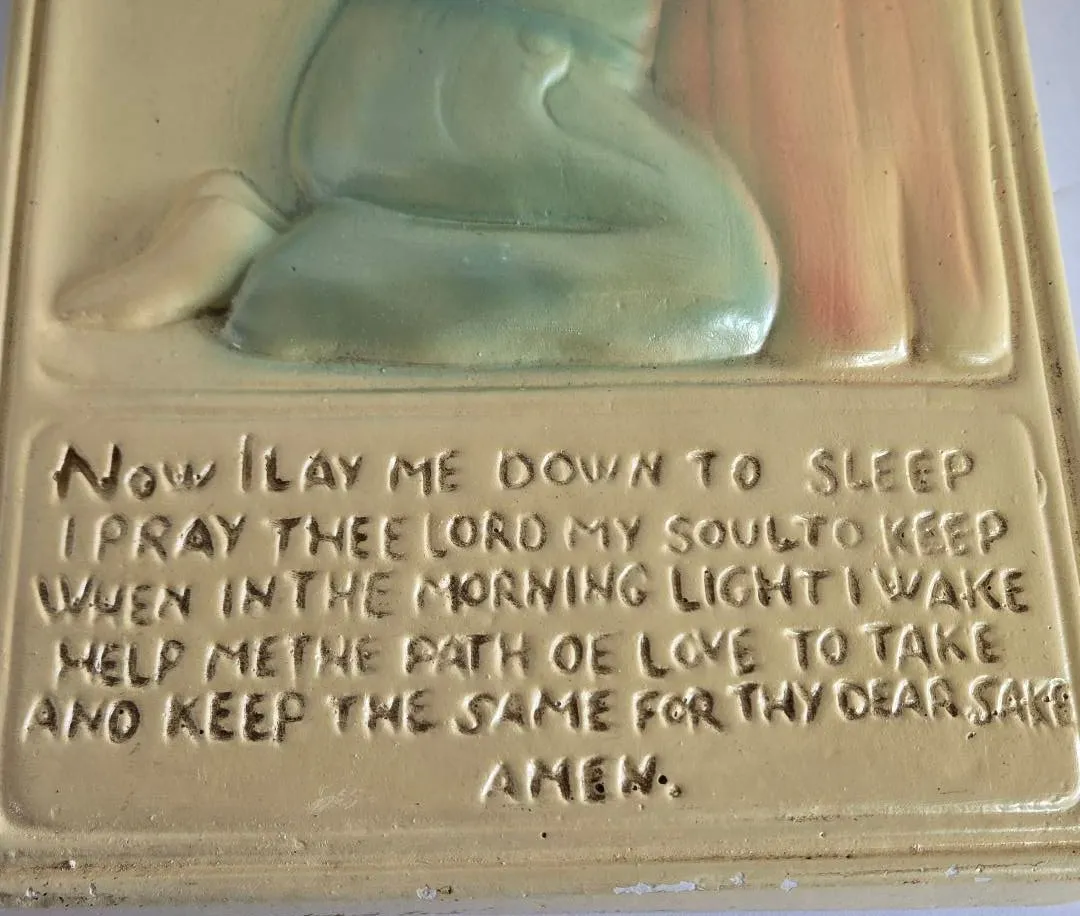 NOW I LAY ME DOWN TO SLEEP
I PRAY THEE LORD MY SOUL TO KEEP
WHEN IN THE MORNING LIGHT I WAKE
HELP ME THE PATH OE LOVE TO TAKE
AND KEEP THE SAME FOR THY DEAR SAKE
AMEN.